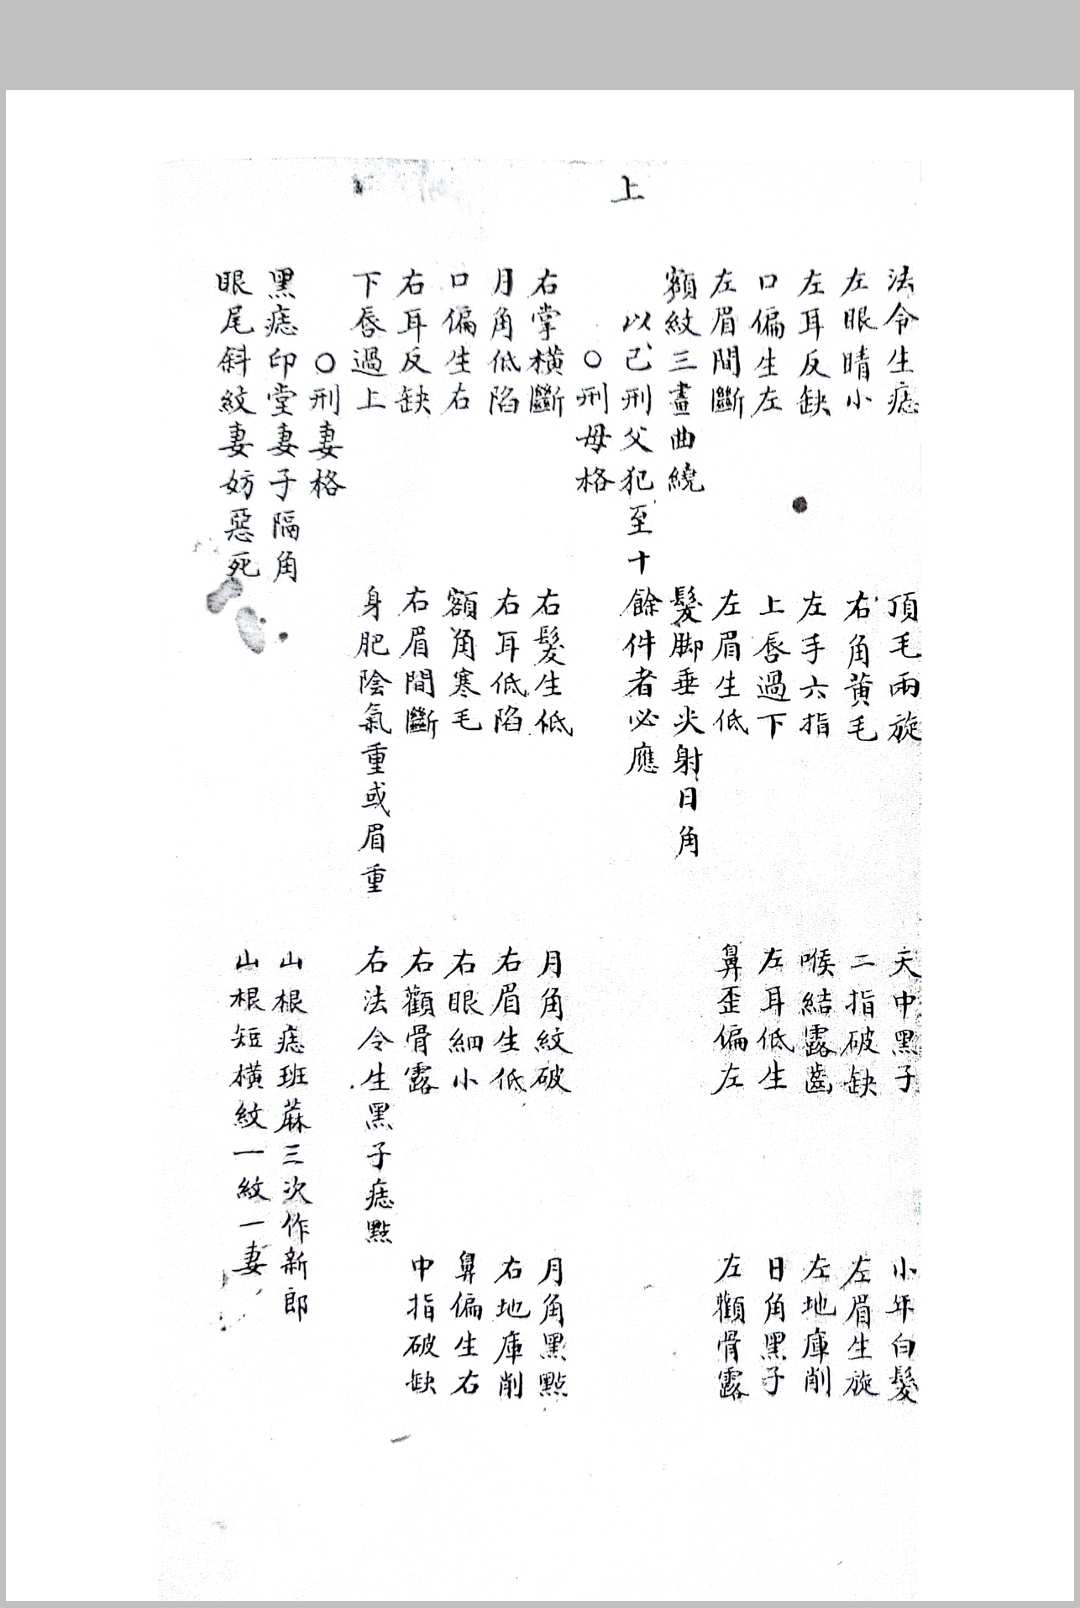 上
法令生痣 頂毛兩旋 天中黑子 小年白髮
左眼睛小 右角黄毛 二指破缺 左眉生旋
左耳反缺 左手六指 喉結露齒 左地庫削
口偏生左 上唇過下 左耳低生 日角黑子
左眉間斷 左眉生低 鼻歪偏左 左顴骨露
額紋三畫曲繞 髮脚垂尖射日角
以已刑父犯至十餘件者必應
○刑母格
右掌橫斷 右髮生低 月角紋破 月角黑點
月角低陷 右耳低陷 右眉生低 右地庫削
口偏生右 額角寒毛 右眼細小 鼻偏生右
右耳反缺 右眉間斷 右顴骨露 中指破缺
下唇過上 身肥陰氣重或眉重 右法令生黑子痣點
○刑妻格
黑痣印堂妻子隔角 山根痣班蔴三次作新郎
眼尾斜紋妻妨惡死 山根短橫紋一紋一妻